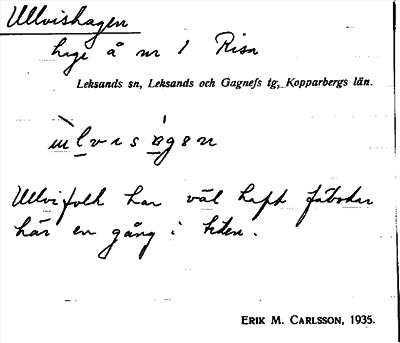 Ullvishagen
hage å nr 1 Risa
Leksands sn, Leksands och Gagnefs tg, Kopparbergs län.
Ullvifolk har väl haft fäbodar
här en gång i tiden.
ERIK M. CARLSSON, 1935.